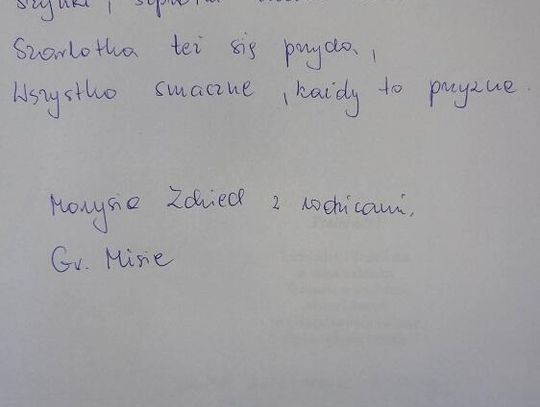 Szarlotka też się przyda,
Wszystko smaczne, każdy to przyzna.
Marysia Zdzieb z rodzicami,
Gr. Misie